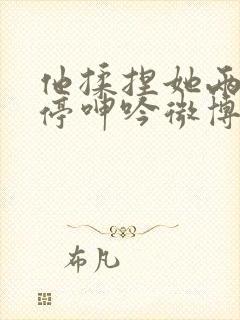 他揉捏她两
停呻吟微博
布凡